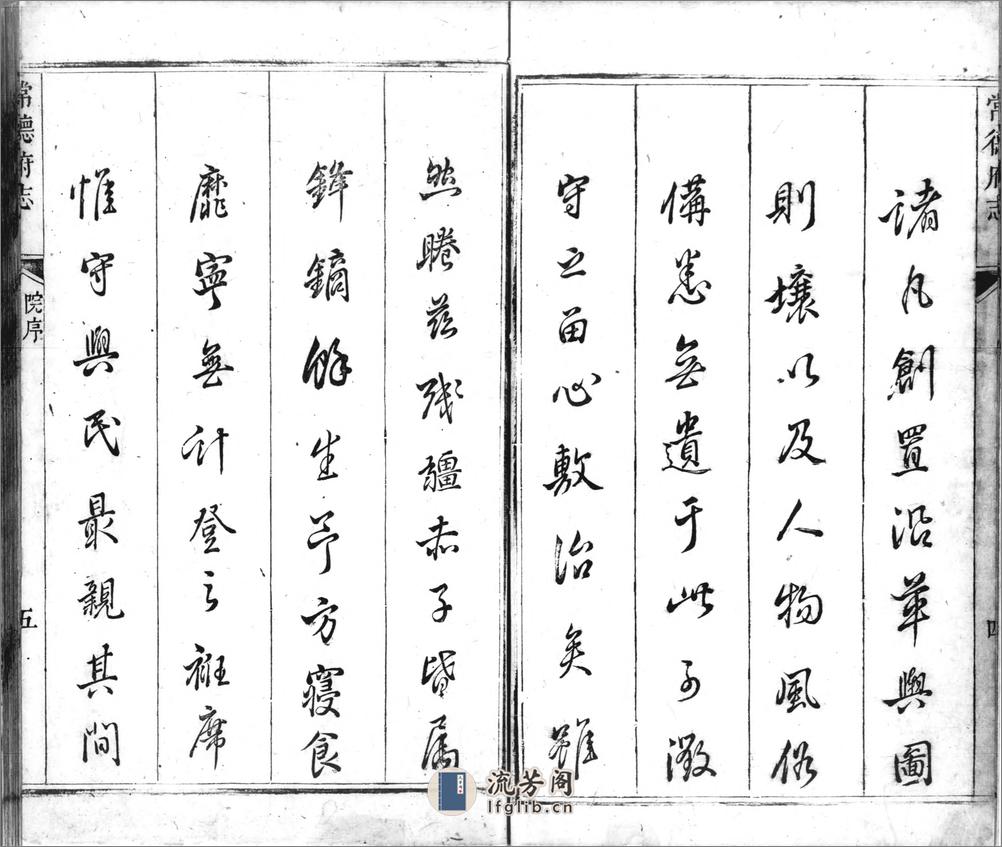 常德府志
諸凡創置沿革輿圖
則壤以及人物風俗
備悉無遺于此可徵
守之留心敷治矣雖
然睠茲殘疆赤子皆屬
鋒鏑餘生予方寢食
靡寧無計登之袵席
惟守與民最親其間
常德府志
院序
五
流芳阁
lfglib.cn